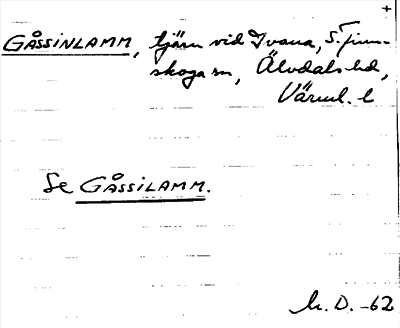 +
GÅSSINLAMM, tjärn vid Ivana, S. Finn-
skoga sn, Älvdals hd,
Värml. l
Se GÅSSILAMM.
h. D. -62